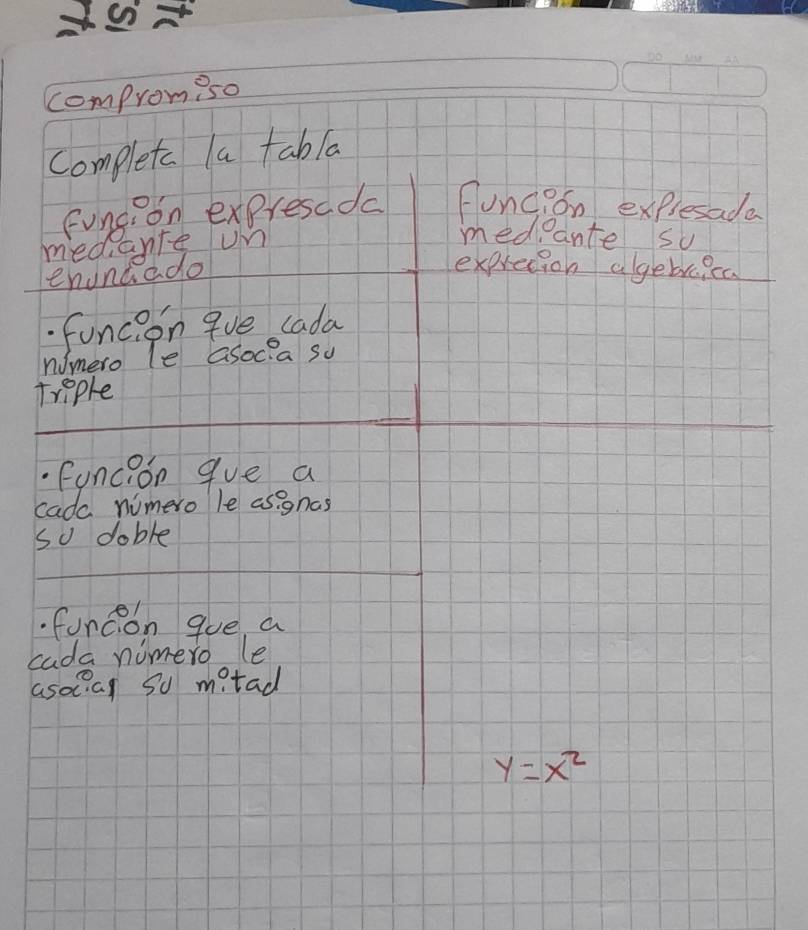 compromiso
Completa la tabla
función expresada
mediante un
enunciado
Función expresada
mediante su
expreción algebraica
• función que cada
número le asocia su
triple
• función que a
cada número le asignas
su doble
• función que a
cada número le
asocias su mitad
y = x²